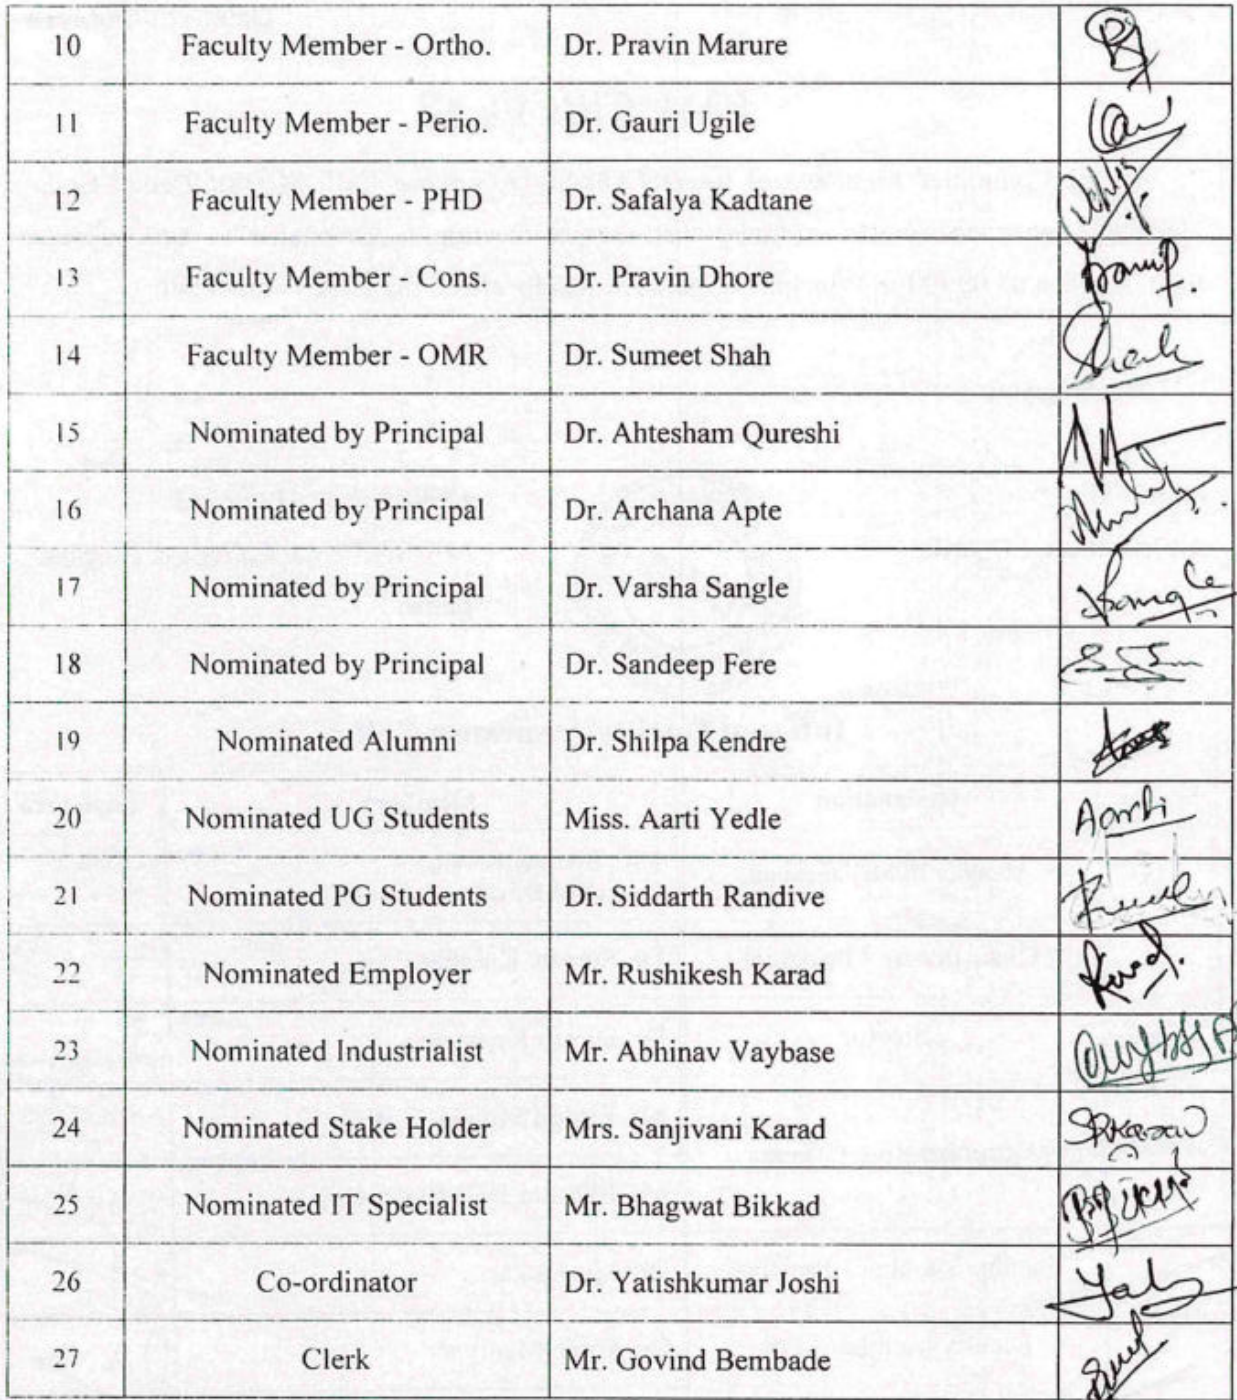 10 Faculty Member - Ortho. Dr. Pravin Marure
11 Faculty Member - Perio. Dr. Gauri Ugile
12 Faculty Member - PHD Dr. Safalya Kadtane
13 Faculty Member - Cons. Dr. Pravin Dhore
14 Faculty Member - OMR Dr. Sumeet Shah
15 Nominated by Principal Dr. Ahtesham Qureshi
16 Nominated by Principal Dr. Archana Apte
17 Nominated by Principal Dr. Varsha Sangle
18 Nominated by Principal Dr. Sandeep Fere
19 Nominated Alumni Dr. Shilpa Kendre
20 Nominated UG Students Miss. Aarti Yedle Aarti
21 Nominated PG Students Dr. Siddarth Randive
22 Nominated Employer Mr. Rushikesh Karad
23 Nominated Industrialist Mr. Abhinav Vaybase
24 Nominated Stake Holder Mrs. Sanjivani Karad
25 Nominated IT Specialist Mr. Bhagwat Bikkad
26 Co-ordinator Dr. Yatishkumar Joshi
27 Clerk Mr. Govind Bembade